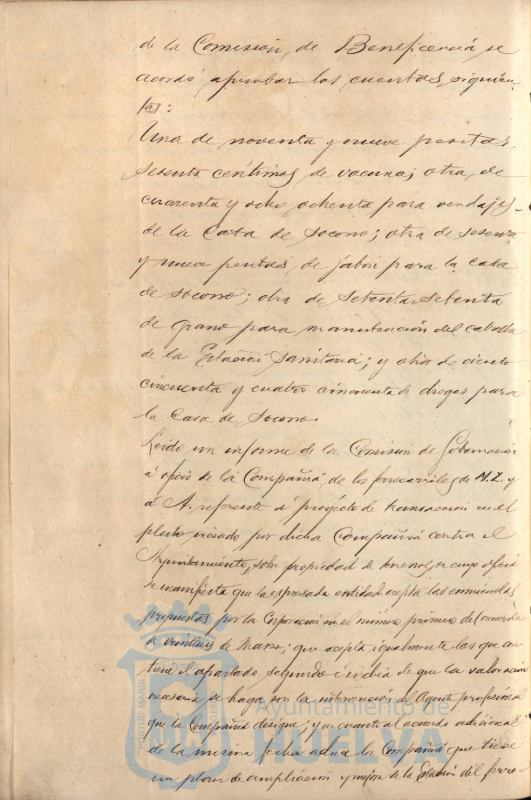 de la Comisión, de Beneficencia se
acordó aprobar las cuentas siguien
tes:
Una de noventa y nueve pesetas
setenta céntimos de vacuna; otra, de
cuarenta y ocho ochenta para vendajes
de la Casa de Socorro; otra de sesenta
y nueve pesetas, de jabón para la casa
de socorro; otra de setenta setenta
de grano para manutención del caballo
de la Estación Sanitaria; y otra de ciento
cincuenta y cuatro cincuenta de drogas para
la Casa de Socorro.
Leido un informe de la Comisión de Gobernación
á oficio de la Compañia de los ferrocarriles de M.Z. y
á A. referente á proyecto de transacción en el
pleito iniciado por dicha Compañia contra el
Ayuntamiento, sobre propiedad de terrenos, en cuyo oficio
se manifiesta que la expresada entidad acepta las enmiendas
propuestas por la Corporación en el número primero del acuerdo
de de Marzo; que acepta igualmente las que con
tiene el apartado segundo é indica de que la valoración
se haga con la intervención del Agente
que la Compañia designe; y en cuanto al acuerdo adicional
de la misma fecha aduce la Compañia que tiene
un plan de ampliación y mejora de la Estación del ferro-
Ayuntamiento de
HUELVA